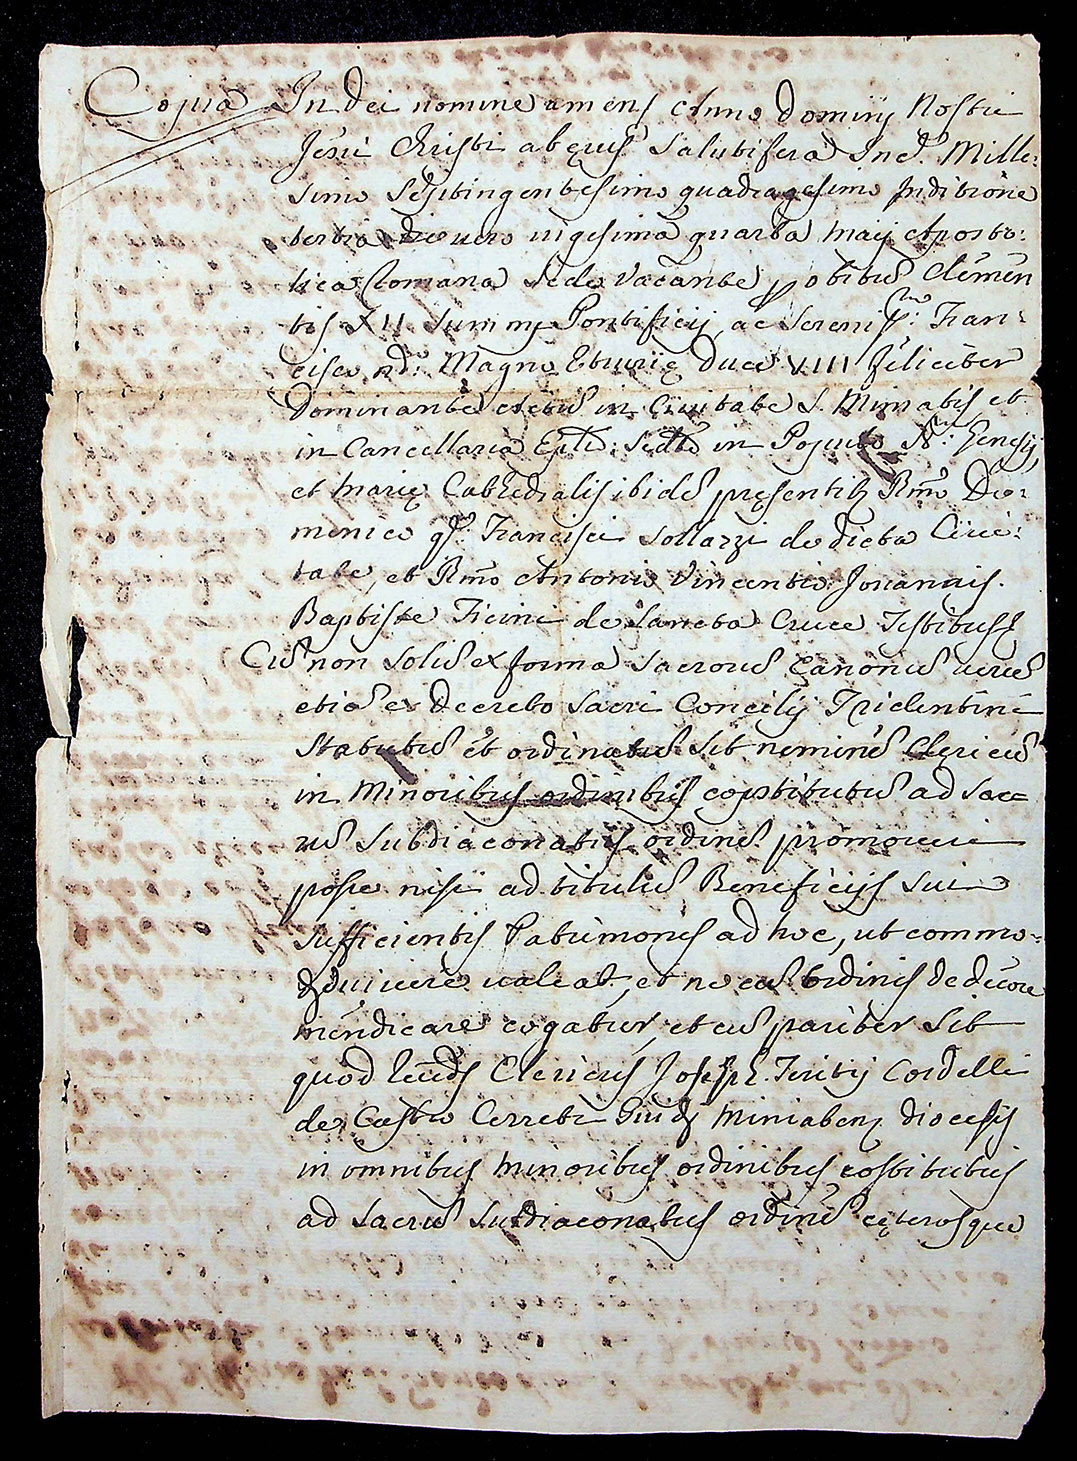 Copia In Dei nomine amens Anno Dominij Nostri
Jesu Christi ab eius Salutifera Incd. Mille:
simo Septingentesimo quadragesimo Inditione
tertia die uero uigesima quarta Maij Aposto:
lica Romana Sede Vacante p obitus Clemen
tis XII Summi Pontificij, ac Sereniss.mo Fran:
cisco nd: Magno Etrurię Duce VIII feliciter
Dominante Actus in Ciuitate S. Miniatis et
in Cancellaria Eple: sedte in Populo Sti: Genesij,
et Marię Cathedralis ibide pręsentib Rmo Do:
menico qd: Francisci Sollazzi de dicta Ciui:
tate, et Rmo Antonio Vincentio Joannis
Baptiste Ficini de Sancta Cruce Testibuss
Cu non solu ex forma Sacroru Canonu ueru
etia ex Decreto Sacri Concilij Tridentini
Statutu et ordinatu sit nemine Clericu
in Minoribus ordinibus constitutu ad Sac
ru Subdiaconatus ordine promoueri
posse nisi ad titulu Beneficijs sui
sufficientis Patrimonij ad hoc, ut commo=
de uiuere ualeat, et ne cu Ordinis dedecore
mendicare cogatur, et cu pariter sit
quod Clericus Joseph Cordelli
de Castro Cerreti Guidi Miniaten diocesis
in omnibus Minoribus ordinibus costitutus
ad Sacru Subdiaconatus ordine ceterosque